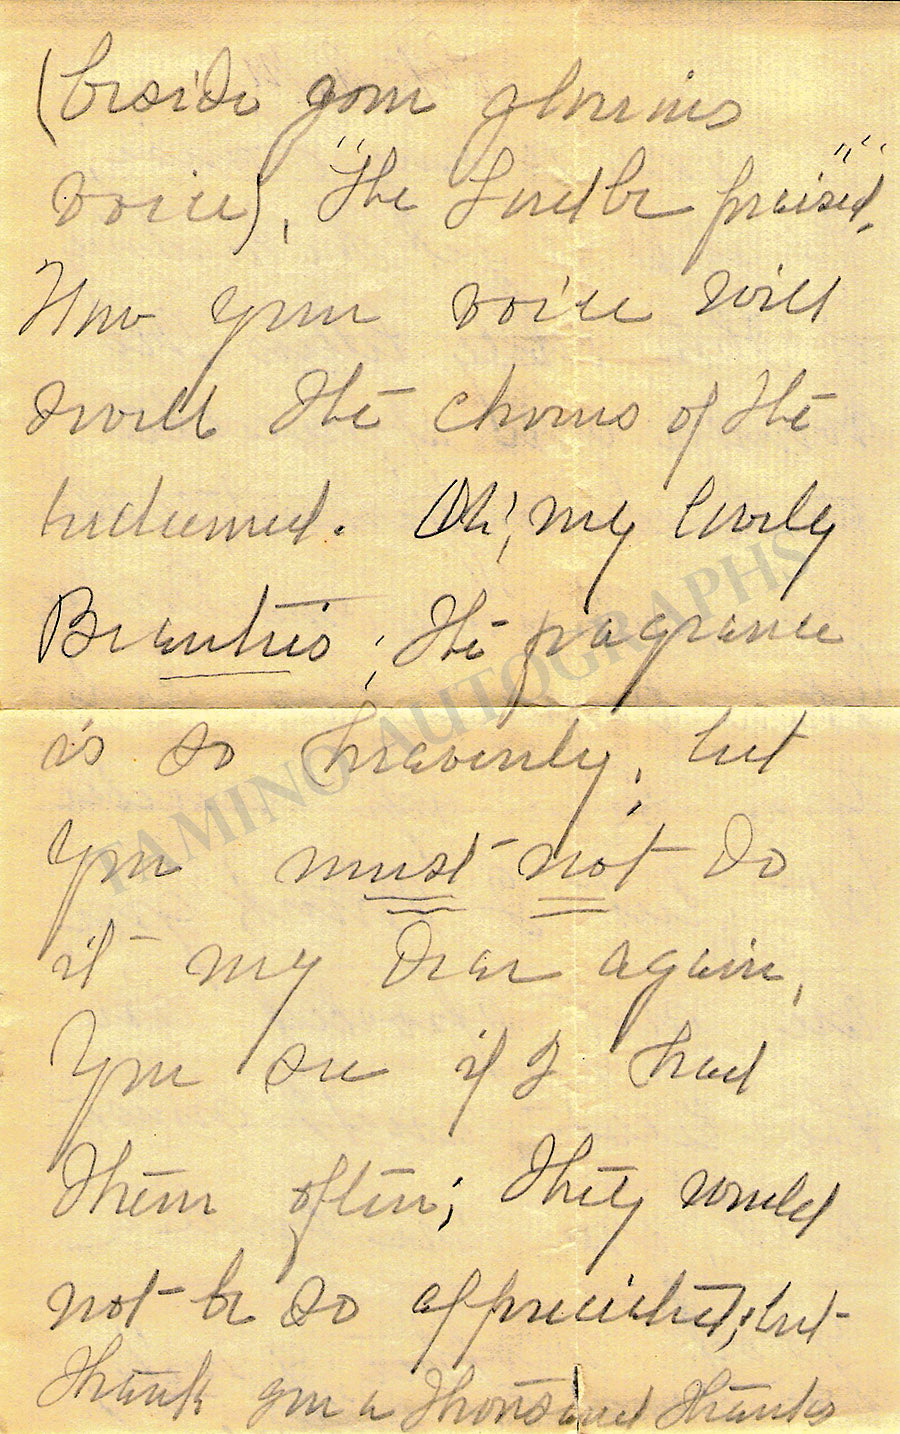 (beside your glorious
voice), "The Lord be praised,"
How your voice will
swell the chorus of the
redeemed. Oh! my lovely
Beauties; the fragrance
is so heavenly; but
you must not do
it my dear again,
You see if I had
them often; they would
not be so appreciated; but
thank you a thousand thanks
TAMINO AUTOGRAPHS